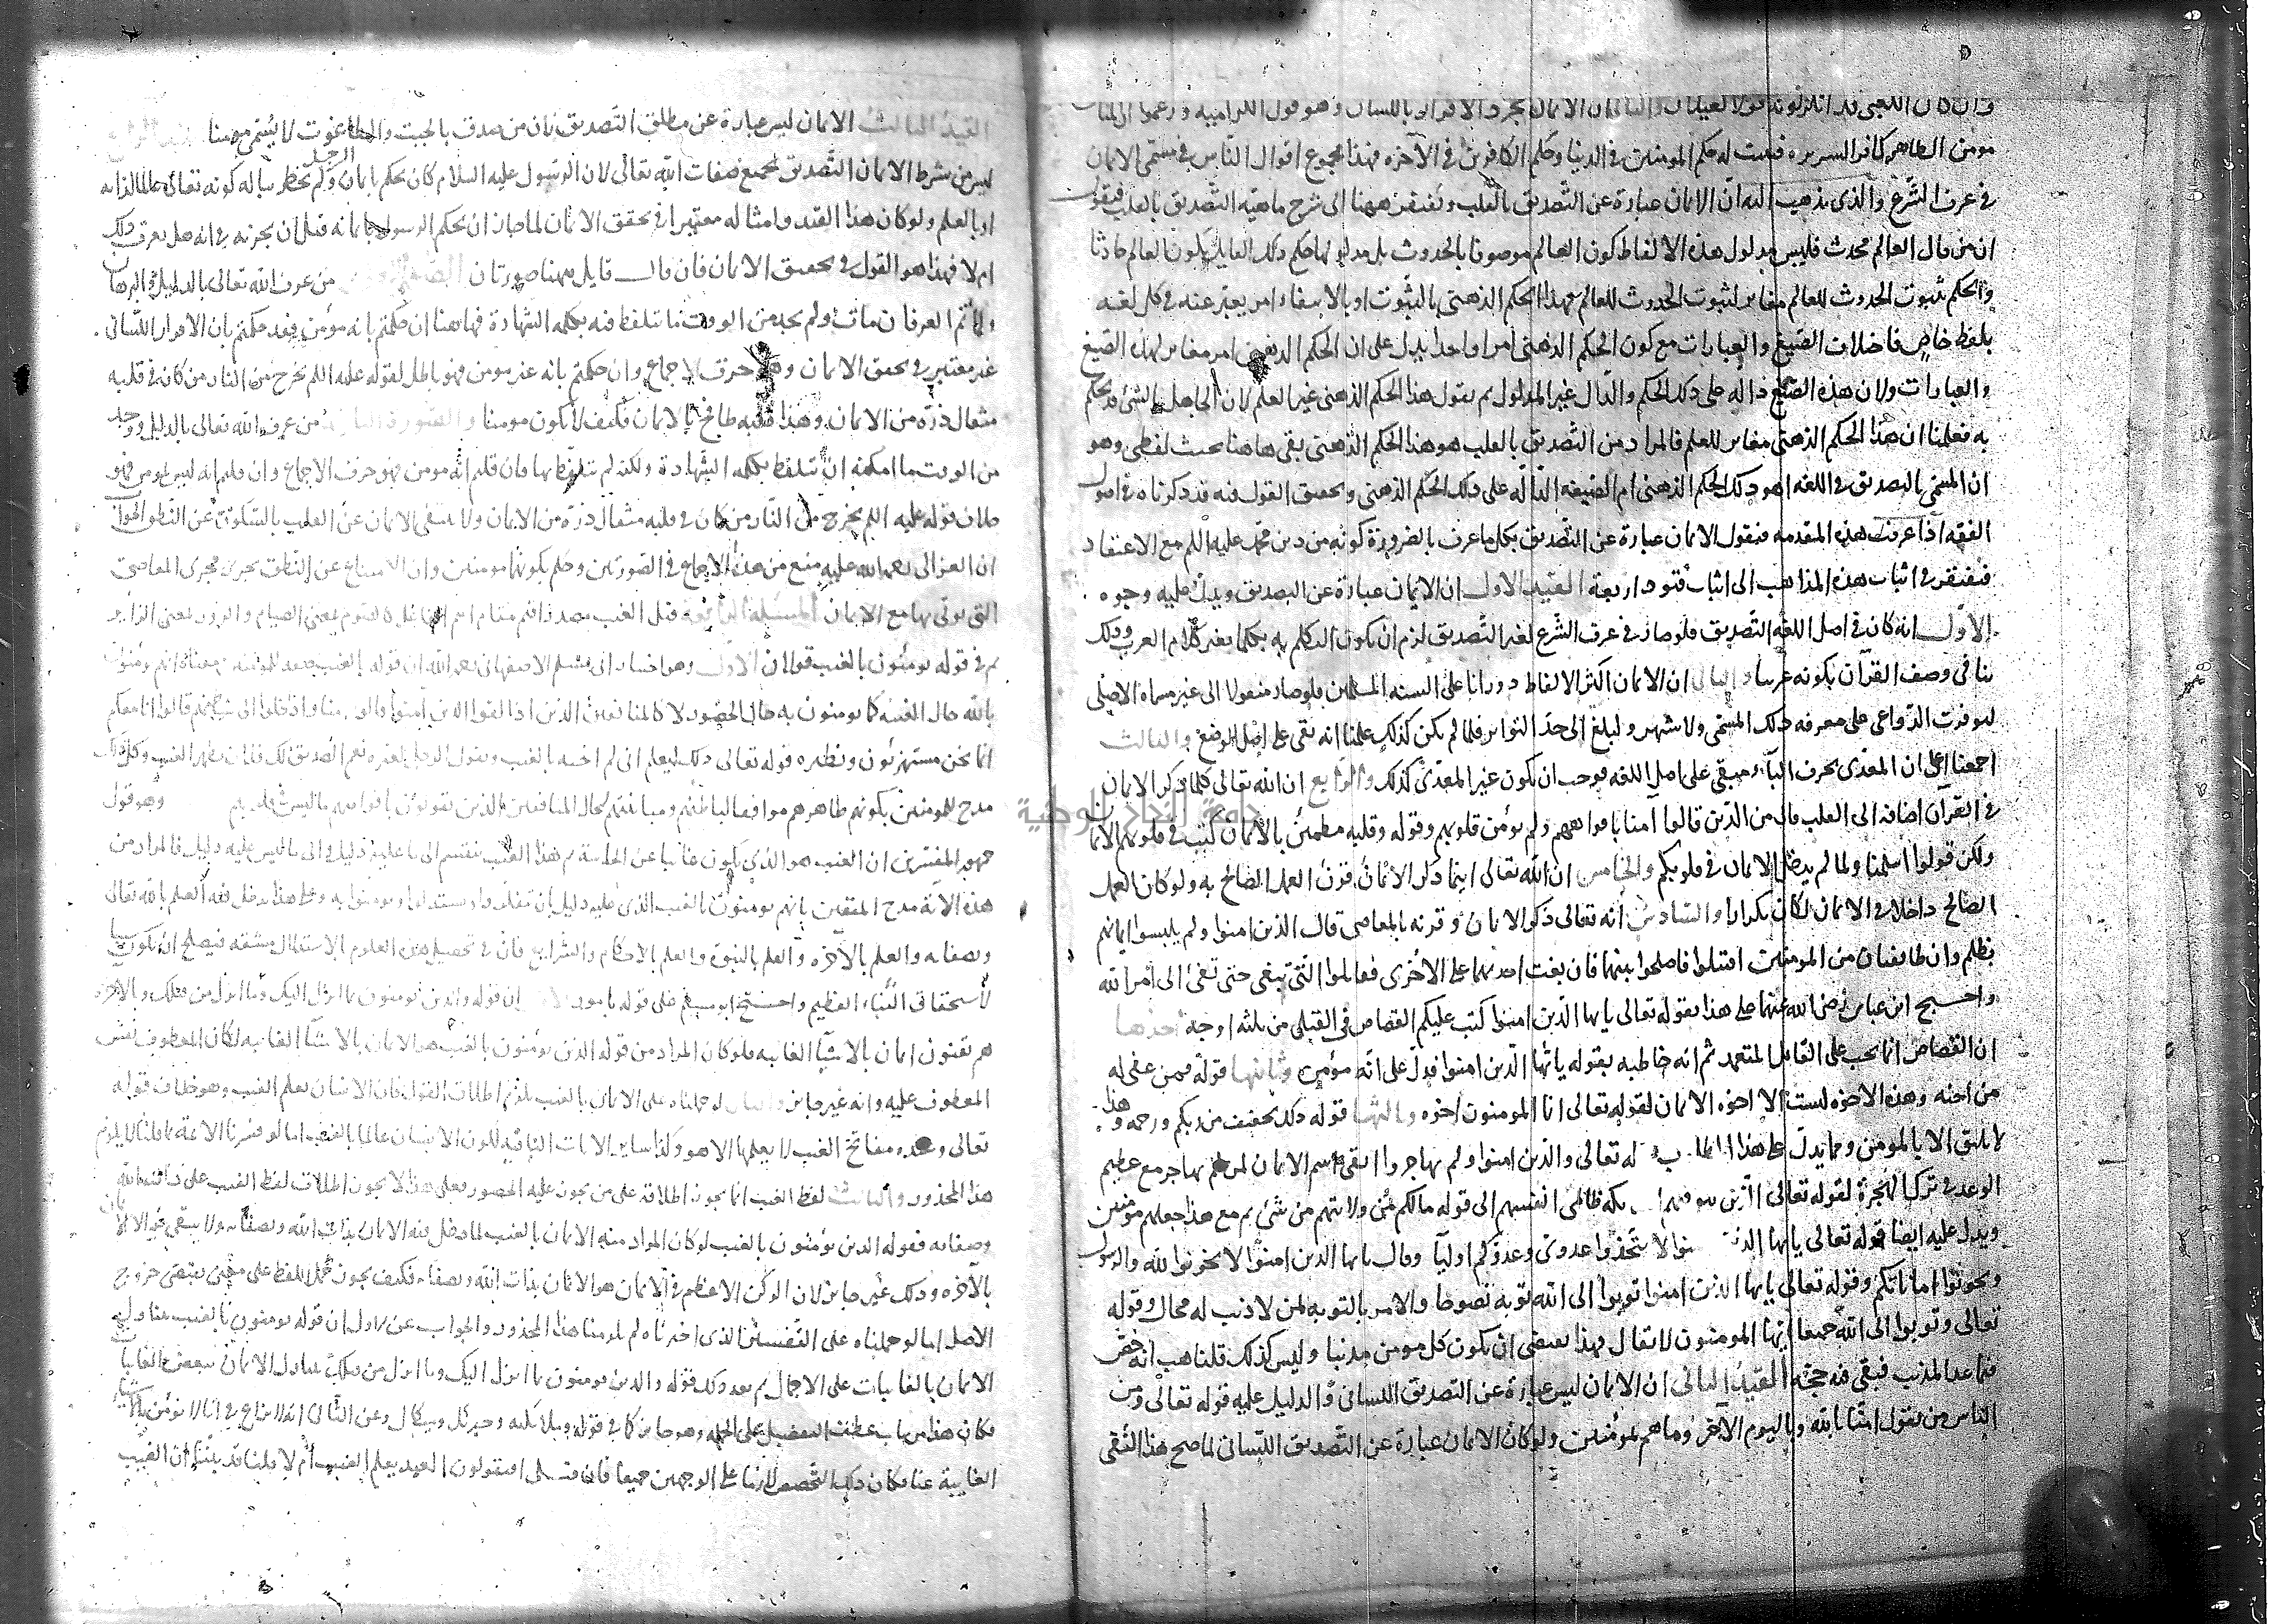 وان كان الكعبى قد انكر كونه قولا لغيلان والثانى ان الايمان مجرد الاقرار باللسان وهو قول الكرامية وزعموا ان المنافق
مومن الظاهر كافر السريره فثبت له حكم المومنين فى الدنيا وحكم الكافرين فى الآخره فهذا مجموع اقوال الناس فى مسمى الايمان
فى عرف الشرع والذى نذهب اليه ان الايمان عبارة عن التصديق بالقلب ونفتقر ههنا الى شرح ماهية التصديق بالقلب فنقول
ان من قال العالم محدث فليس مدلول هذه الالفاظ كون العالم موصوفا بالحدوث بل مدلولها حكم ذلك القايل بكون العالم حادثا
والحكم بثبوت الحدوث للعالم مغاير لثبوت الحدوث للعالم فهذا الحكم الذهنى بالثبوت او بالانتفاء امر يعبر عنه فى كل لغة
بلفظ خاص فاختلاف الصيغ والعبارات مع كون الحكم الذهنى امرا واحدا يدل على ان الحكم الذهنى امر مغاير لهذه الصيغ
والعبارات ولان هذه الصيغ دالة على ذلك الحكم والدال غير المدلول ثم نقول هذا الحكم الذهنى غير العلم لان الجاهل بالشئ قد يحكم
به فعلمنا ان هذا الحكم الذهنى مغاير للعلم فالمراد من التصديق بالقلب هو هذا الحكم الذهنى بقى هاهنا بحث لفظى وهو
ان المسمى بالتصديق فى اللغه اهو ذلك الحكم الذهنى ام الصيغة الدالة على ذلك الحكم الذهنى وتحقيق القول فيه قد ذكرناه فى اصول
الفقه اذا عرفت هذه المقدمه فنقول الايمان عبارة عن التصديق بكل ما عرف بالضرورة كونه من دين محمد عليه اللم مع الاعتقاد
فنفتقر فى اثبات هذه المذاهب الى اثبات قيود اربعة القيد الاول ان الايمان عبارة عن التصديق ويدل عليه وجوه
الاول انه كان فى اصل اللغه التصديق فلو صار فى عرف الشرع لغير التصديق لزم ان يكون المتكلم به متكلما بغير كلام العرب وذلك
ينافى وصف القرآن بكونه عربيا والثانى ان الايمان اكثر الالفاظ دورانا على السنة المسلمين فلو صار منقولا الى غير مسماه الاصلى
لتوفرت الدواعى على معرفه ذلك المسمى ولاشتهر ولبلغ الى حد التواتر فلما لم يكن كذلك علمنا انه بقى على اصل الوضع والثالث
اجمعنا على ان المعدى بحرف الباء مبقى على اصل اللغه فوجب ان يكون غير المعدى كذلك والرابع ان الله تعالى كلما ذكر الايمان
فى القرآن اضافه الى القلب قال من الذين قالوا آمنا بافواههم ولم تؤمن قلوبهم وقوله وقلبه مطمئن بالايمان كتب فى قلوبهم الايمان
ولكن قولوا اسلمنا ولما لم يدخل الايمان فى قلوبكم والخامس ان الله تعالى اينما ذكر الايمان قرن العمل الصالح به ولو كان العمل
الصالح داخلا فى الايمان لكان تكرارا والسادس انه تعالى ذكر الايمان وقرنه بالمعاصى قال الذين امنوا ولم يلبسوا ايمانهم
بظلم وان طايفتان من المومنين اقتتلوا فاصلحوا بينهما فان بغت احديهما على الاخرى فقاتلوا التى تبغى حتى تفئ الى امر الله
واحتج ابن عباس رضى الله عنهما على هذا بقوله تعالى يايها الذين امنوا كتب عليكم القصاص فى القتلى من ثلثه اوجه احدها
ان القصاص انما يجب على القاتل المتعمد ثم انه خاطبه بقوله يايها الذين امنوا فدل على انه مؤمن وثانيها قوله فمن عفى له
من اخيه وهذه الاخوه ليست الا اخوه الايمان لقوله تعالى انما المومنون اخوه وثالثها قوله ذلك تخفيف من ربكم ورحمه وهذا
لا يليق الا بالمومن ومما يدل على هذا المطلوب له تعالى والذين امنوا ولم يهاجروا ابقى اسم الايمان لمن لم يهاجر مع عظيم
الوعيد فى ترك الهجرة لقوله تعالى الذين تتوفيهم الملئكه ظالمى انفسهم الى قوله مالكم من ولايتهم من شئ ثم مع هذا جعلهم مؤمنين
ويدل عليه ايضا قوله تعالى يايها الذين امنوا لا تتخذوا عدوى وعدوكم اوليآ وقال يايها الذين امنوا لا تخونوا الله والرسول
وتخونوا اماناتكم وقوله تعالى يايها الذين امنوا توبوا الى الله توبة نصوحا والامر بالتوبه لمن لا ذنب له محال وقوله
تعالى وتوبوا الى الله جميعا ايها المومنون لا يقال فهذا يقتضى ان يكون كل مومن مذنبا وليس كذلك قلنا هب انه خص
فيما عدا المذنب فبقى فيه حجة القيد الثانى ان الايمان ليس عبارة عن التصديق اللسانى والدليل عليه قوله تعالى ومن
الناس من يقول امنا بالله وباليوم الآخر وما هم بمؤمنين ولو كان الايمان عبارة عن التصديق اللسانى لما صح هذا النفى
القيد الثالث الايمان ليس عبارة عن مطلق التصديق لان من صدق بالجبت والطاغوت لا يسمى مومنا القيد الرابع
ليس من شرط الايمان التصديق بجميع صفات الله تعالى لان الرسول عليه السلام كان يحكم بايمان الرجل ولم يخطر بباله كونه تعالى عالما لذاته
او بالعلم ولو كان هذا القيد وامثاله معتبرا فى تحقق الايمان لما جاز ان يحكم الرسول بايمانه قبل ان يجربه فى انه هل يعرف ذلك
ام لا فهذا هو القول فى تحقيق الايمان فان قال قايل ههنا صورتان الصورة الاولى من عرف الله تعالى بالدليل والبرهان
ولما تم العرفان مات ولم يجد من الوقت ما تلفظ فيه بكلمه الشهادة فهاهنا ان حكمتم بانه مؤمن فقد حكمتم بان الاقرار اللسانى
غير معتبر فى تحقق الايمان وهو خرق الاجماع وان حكمتم بانه غير مومن فهو باطل لقوله عليه اللم يخرج من النار من كان فى قلبه
مثقال ذرة من الايمان وهذا قلبه طافح بالايمان فكيف لا يكون مومنا والصورة الثانيه من عرف الله تعالى بالدليل ووجد
من الوقت ما امكنه ان يتلفظ بكلمه الشهادة ولكنه لم يتلفظ بها فان قلتم انه مومن فهو خرق الاجماع وان قلتم انه ليس بمومن فهو
باطل لقوله عليه اللم يخرج من النار من كان فى قلبه مثقال ذرة من الايمان ولا ينتفى الايمان عن القلب بالسكوت عن النطق والجواب
ان الغزالى رحمه الله عليه منع من هذا الاجماع فى الصورتين وحكم بكونهما مومنين وان الامتناع عن النطق يجرى مجرى المعاصى
التى يوتى بها مع الايمان المسئله الرابعة قيل الغيب مصدر اقيم مقام اسم الفاعل كالصوم بمعنى الصايم والزور بمعنى الزاير
ثم فى قوله يومنون بالغيب قولان الاول وهو اختيار ابى مسلم الاصفهانى رحمه الله ان قوله بالغيب صفه المومنين معناه انهم يؤمنون
بالله حال الغيبه كما يومنون به حال الحضور لا كالمنافقين الذين اذا لقوا الذين آمنوا قالوا امنا واذا خلوا الى شياطينهم قالوا انا معكم
انما نحن مستهزئون ونظيره قوله تعالى ذلك ليعلم انى لم اخنه بالغيب ويقول الرجل لغيره نعم الصديق لك فلان بظهر الغيب وكل ذلك
مدح للمومنين بكونهم ظاهرهم موافقا لباطنهم ومباينتهم لحال المنافقين الذين يقولون بافواههم ما ليس فى قلوبهم وهو قول
جمهور المفسرين ان الغيب هو الذى يكون غايبا عن الحاسة ثم هذا الغيب ينقسم الى ما عليه دليل والى ما ليس عليه دليل فالمراد من
هذه الآية مدح المتقين بانهم يومنون بالغيب الذى عليه دليل بان يتفكروا ويستدلوا ويومنوا به وعلى هذا يدخل فيه العلم بالله تعالى
وبصفاته والعلم بالآخره والعلم بالنبوة والعلم بالاحكام والشرايع فان فى تحصيل هذه العلوم بالاستدلال مشقه فيصلح ان يكون سببا
لاستحقاق الثناء العظيم واحتج ابو مسلم على قوله بامور الاول ان قوله والذين يومنون بما انزل اليك وما انزل من قبلك وبالآخره
هم يوقنون ايمان بالاشيآ الغايبه فلو كان المراد من قوله الذين يومنون بالغيب هو الايمان بالاشيآ الغايبه لكان المعطوف نفس
المعطوف عليه وانه غير جايز والثانى لو حملناه على الايمان بالغيب يلزم اطلاق القول بان الانسان يعلم الغيب وهو خلاف قوله
تعالى وعنده مفاتح الغيب لا يعلمها الا هو وكذا ساير الايات الباقيه لكون الانسان عالما بالغيب اما لو فسرنا الآية بما قلنا لا يلزم
هذا المحذور والثالث لفظ الغيب انما يجوز اطلاقه على من يجوز عليه الحضور فعلى هذا لا يجوز اطلاق لفظ الغيب على ذات الله
وصفاته فقوله الذين يؤمنون بالغيب لو كان المراد منه الايمان بالغيب لما دخل فيه الايمان بذات الله وبصفاته ولا يبقى فيه الا الايمان
بالآخره وذلك غير جايز لان الركن الاعظم فى الايمان هو الايمان بذات الله وبصفاته فكيف يجوز حمل اللفظ على معنى يقتضى خروج
الاصل اما لو حملناه على التفسير الذى اخترناه لم يلزمنا هذا المحذور والجواب عن الاول ان قوله يومنون بالغيب يتناول
الايمان بالغايبات على الاجمال ثم بعد ذلك قوله والذين يومنون بما انزل اليك وما انزل من قبلك يتناول الايمان ببعض الغايبات
فكان هذا من باب عطف التفصيل على الجمله وهو جايز كما فى قوله وملائكته وجبريل وميكال وعن الثانى انه لا نزاع فى انا نؤمن بالاشيآ
الغايبة عنا فكان ذلك التخصيص لازما على الوجهين جميعا فان قيل افتقولون العبد يعلم الغيب ام لا قلنا قد بينا ان الغيب